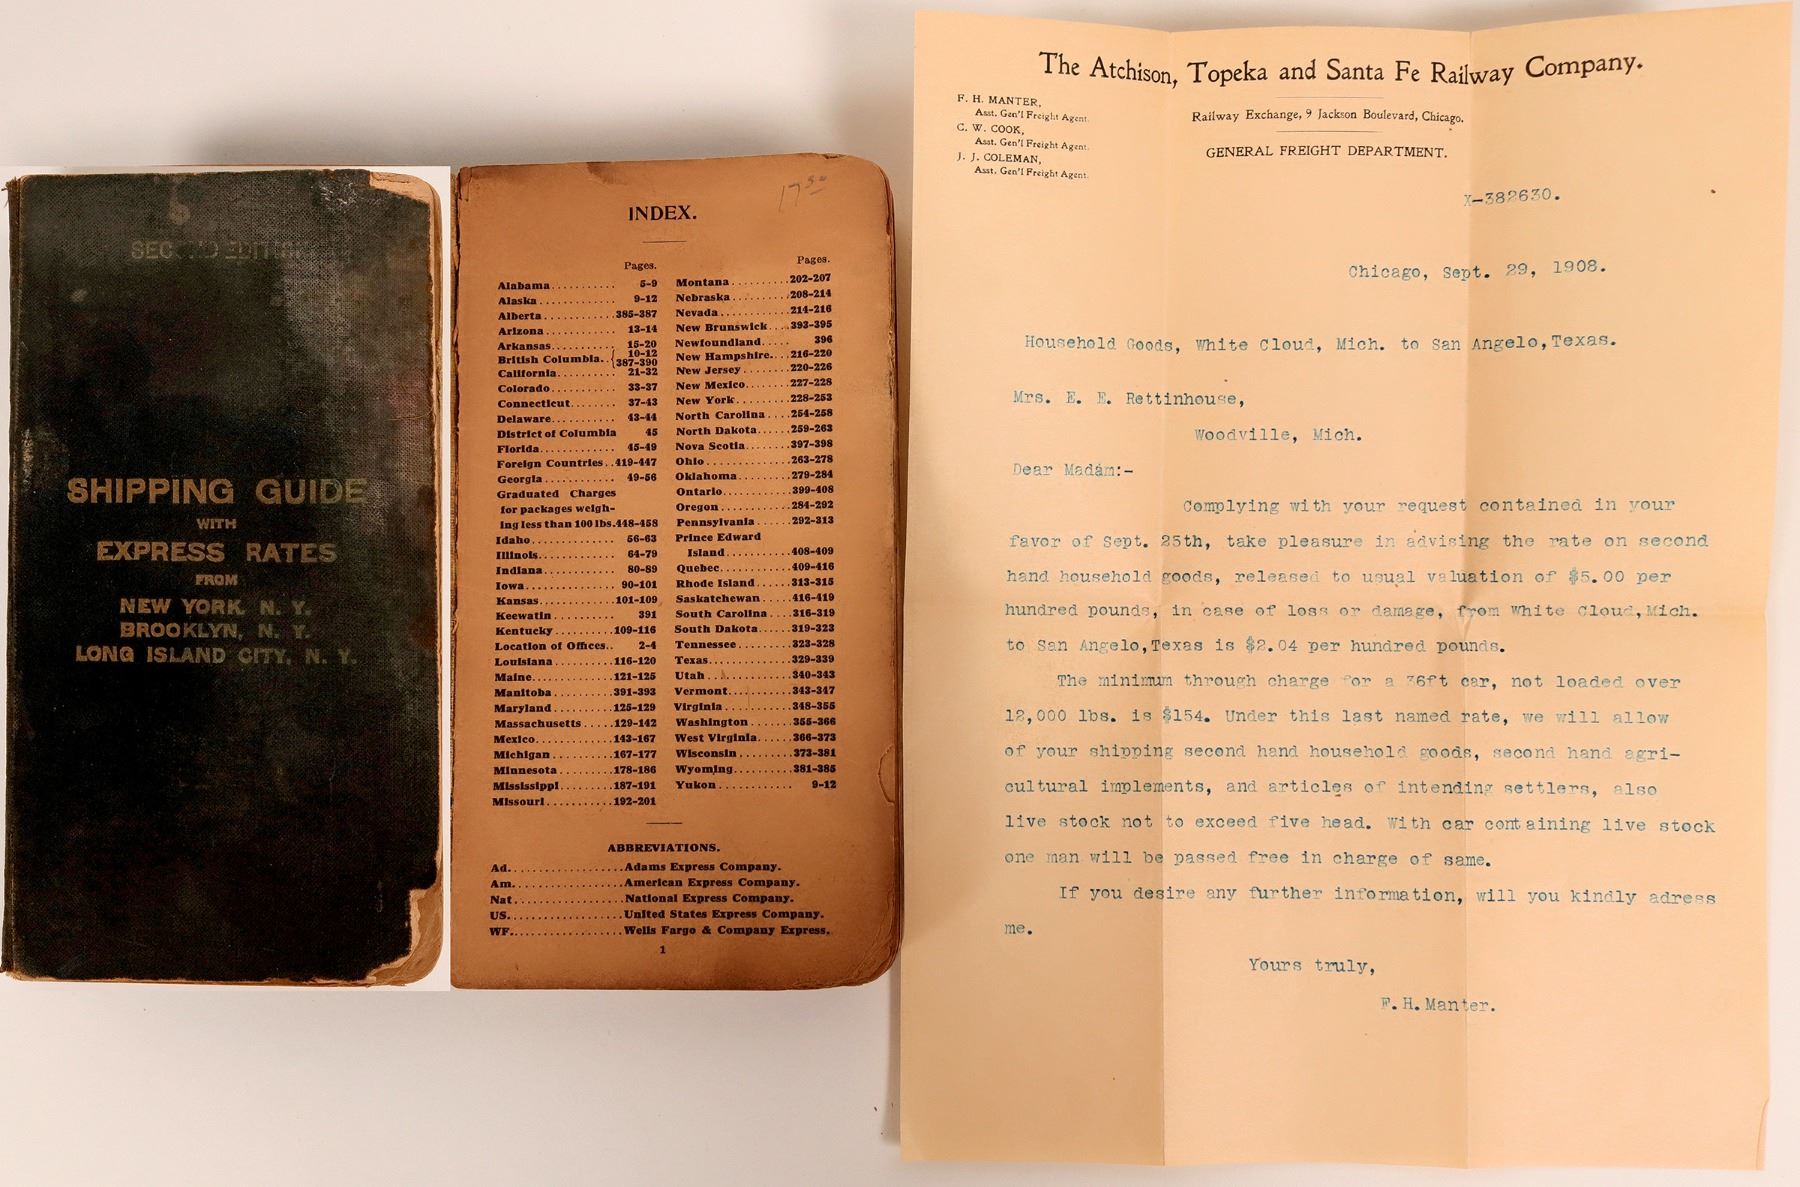 SECOND EDITION
SHIPPING GUIDE
WITH
EXPRESS RATES
FROM
NEW YORK, N. Y.
BROOKLYN, N. Y.
LONG ISLAND CITY, N. Y.
17 50
INDEX.
Pages.
Alabama.......... 5-9
Alaska............ 9-12
Alberta............385-387
Arizona........... 13-14
Arkansas.......... 15-20
British Columbia..{ 10-12
387-390
California......... 21-32
Colorado.......... 33-37
Connecticut....... 37-43
Delaware.......... 43-44
District of Columbia 45
Florida............ 45-49
Foreign Countries..419-447
Georgia........... 49-56
Graduated Charges
for packages weigh-
ing less than 100 lbs.448-458
Idaho............. 56-63
Illinois............ 64-79
Indiana........... 80-89
Iowa.............. 90-101
Kansas............101-109
Keewatin 391
Kentucky..........109-116
Location of Offices.. 2-4
Louisiana..........116-120
Maine.............121-125
Manitoba..........391-393
Maryland..........125-129
Massachusetts.....129-142
Mexico............143-167
Michigan..........167-177
Minnesota.........178-186
Mississippi.........187-191
Missouri...........192-201
Pages.
Montana..........202-207
Nebraska..........208-214
Nevada............214-216
New Brunswick....393-395
Newfoundland..... 396
New Hampshire...216-220
New Jersey........220-226
New Mexico.......227-228
New York.........228-253
North Carolina....254-258
North Dakota......259-263
Nova Scotia........397-398
Ohio..............263-278
Oklahoma.........279-284
Ontario............399-408
Oregon............284-292
Pennsylvania......292-313
Prince Edward
Island...........408-409
Quebec............409-416
Rhode Island......313-315
Saskatchewan.....416-419
South Carolina....316-319
South Dakota......319-323
Tennessee.........323-328
Texas.............329-339
Utah..............340-343
Vermont...........343-347
Virginia...........348-355
Washington.......355-366
West Virginia......366-373
Wisconsin.........373-381
Wyoming..........381-385
Yukon............ 9-12
ABBREVIATIONS.
Ad...................Adams Express Company.
Am...................American Express Company.
Nat..................National Express Company.
US...................United States Express Company.
WF...................Wells Fargo & Company Express.
1
The Atchison, Topeka and Santa Fe Railway Company.
F. H. MANTER,
Asst. Gen'l Freight Agent.
C. W. COOK,
Asst. Gen'l Freight Agent.
J. J. COLEMAN,
Asst. Gen'l Freight Agent.
Railway Exchange, 9 Jackson Boulevard, Chicago.
GENERAL FREIGHT DEPARTMENT.
X-382630.
Chicago, Sept. 29, 1908.
Household Goods, White Cloud, Mich. to San Angelo,Texas.
Mrs. E. E. Rettinhouse,
Woodville, Mich.
Dear Madam:-
Complying with your request contained in your
favor of Sept. 25th, take pleasure in advising the rate on second
hand household goods, released to usual valuation of $5.00 per
hundred pounds, in case of loss or damage, from White Cloud,Mich.
to San Angelo,Texas is $2.04 per hundred pounds.
The minimum through charge for a 36ft car, not loaded over
12,000 lbs. is $154. Under this last named rate, we will allow
of your shipping second hand household goods, second hand agri-
cultural implements, and articles of intending settlers, also
live stock not to exceed five head. With car containing live stock
one man will be passed free in charge of same.
If you desire any further information, will you kindly adress
me.
Yours truly,
F.H.Manter.